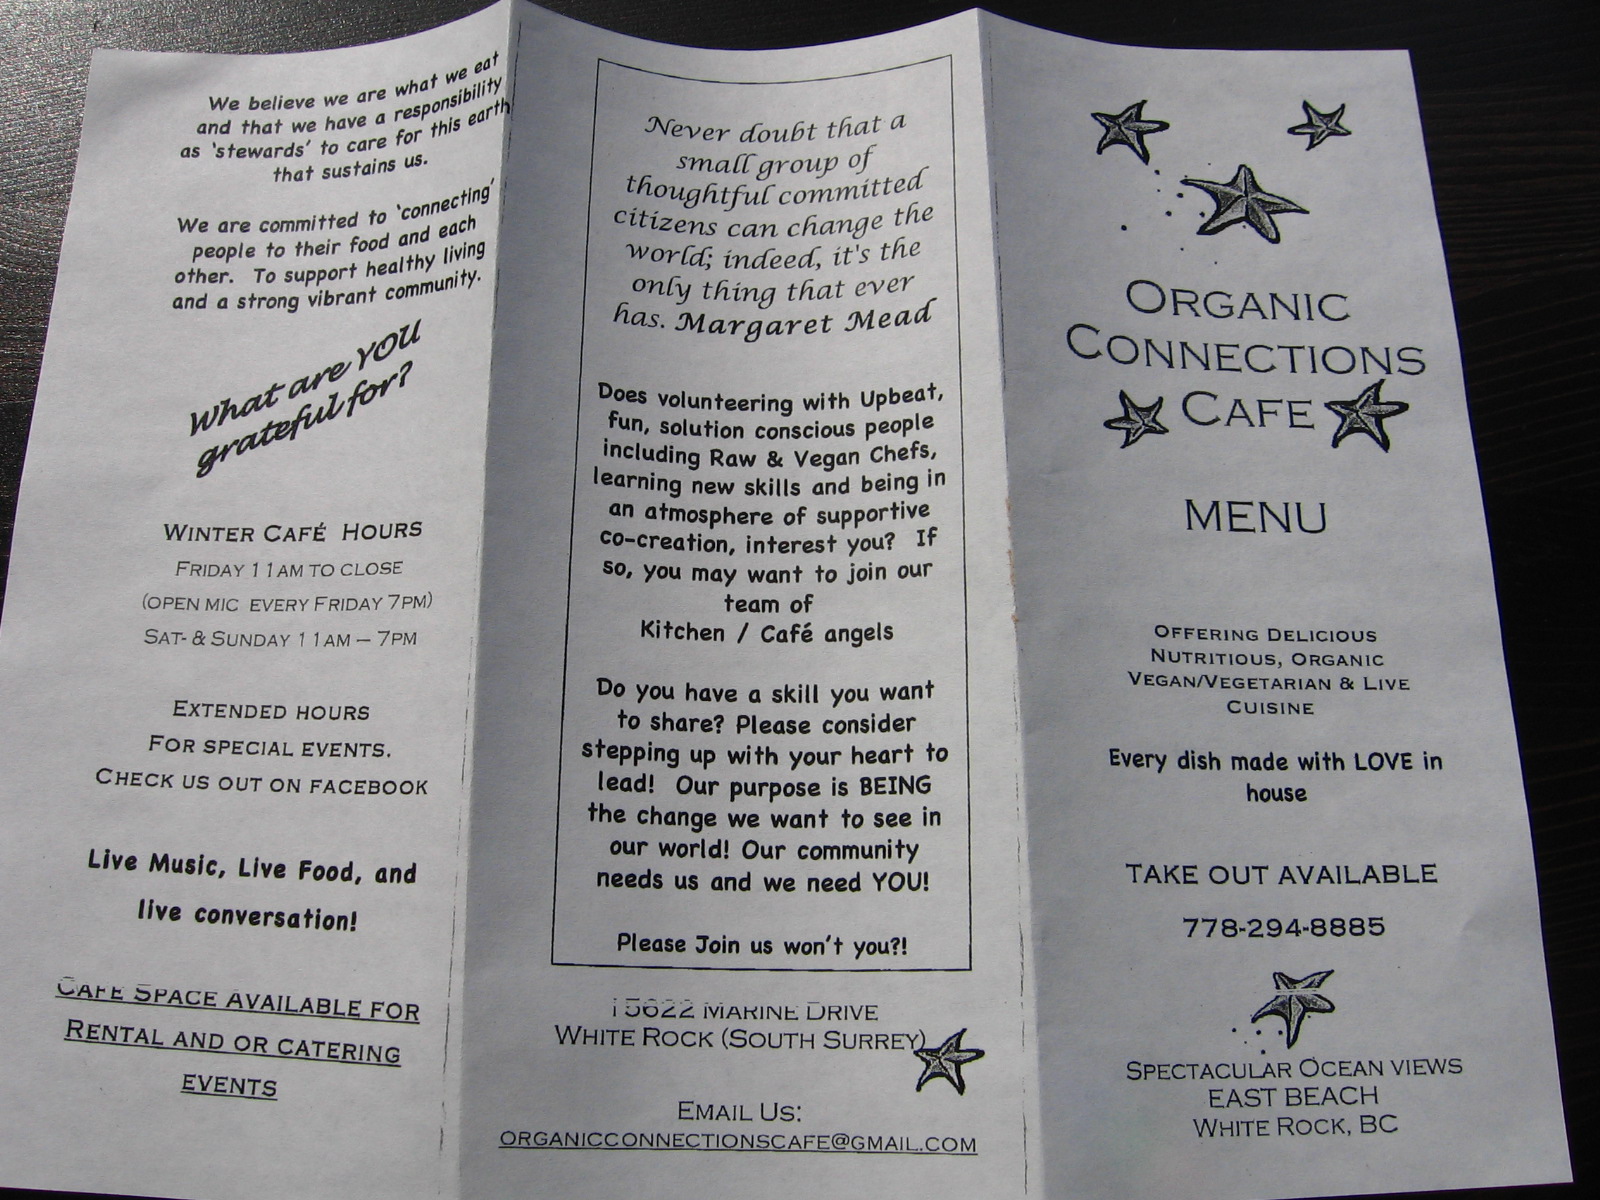 We believe we are what we eat
and that we have a responsibility
as 'stewards' to care for this earth
that sustains us.
We are committed to 'connecting'
people to their food and each
other. To support healthy living
and a strong vibrant community.
What are YOU
grateful for?
WINTER CAFÉ HOURS
FRIDAY 11AM TO CLOSE
(OPEN MIC EVERY FRIDAY 7PM)
SAT- & SUNDAY 11AM – 7PM
EXTENDED HOURS
FOR SPECIAL EVENTS.
CHECK US OUT ON FACEBOOK
Live Music, Live Food, and
live conversation!
CAFE SPACE AVAILABLE FOR
RENTAL AND OR CATERING
EVENTS
Never doubt that a
small group of
thoughtful committed
citizens can change the
world; indeed, it's the
only thing that ever
has. Margaret Mead
Does volunteering with Upbeat,
fun, solution conscious people
including Raw & Vegan Chefs,
learning new skills and being in
an atmosphere of supportive
co-creation, interest you? If
so, you may want to join our
team of
Kitchen / Café angels
Do you have a skill you want
to share? Please consider
stepping up with your heart to
lead! Our purpose is BEING
the change we want to see in
our world! Our community
needs us and we need YOU!
Please Join us won't you?!
15622 MARINE DRIVE
WHITE ROCK (SOUTH SURREY)
EMAIL US:
ORGANICCONNECTIONSCAFE@GMAIL.COM
ORGANIC
CONNECTIONS
CAFE
MENU
OFFERING DELICIOUS
NUTRITIOUS, ORGANIC
VEGAN/VEGETARIAN & LIVE
CUISINE
Every dish made with LOVE in
house
TAKE OUT AVAILABLE
778-294-8885
SPECTACULAR OCEAN VIEWS
EAST BEACH
WHITE ROCK, BC